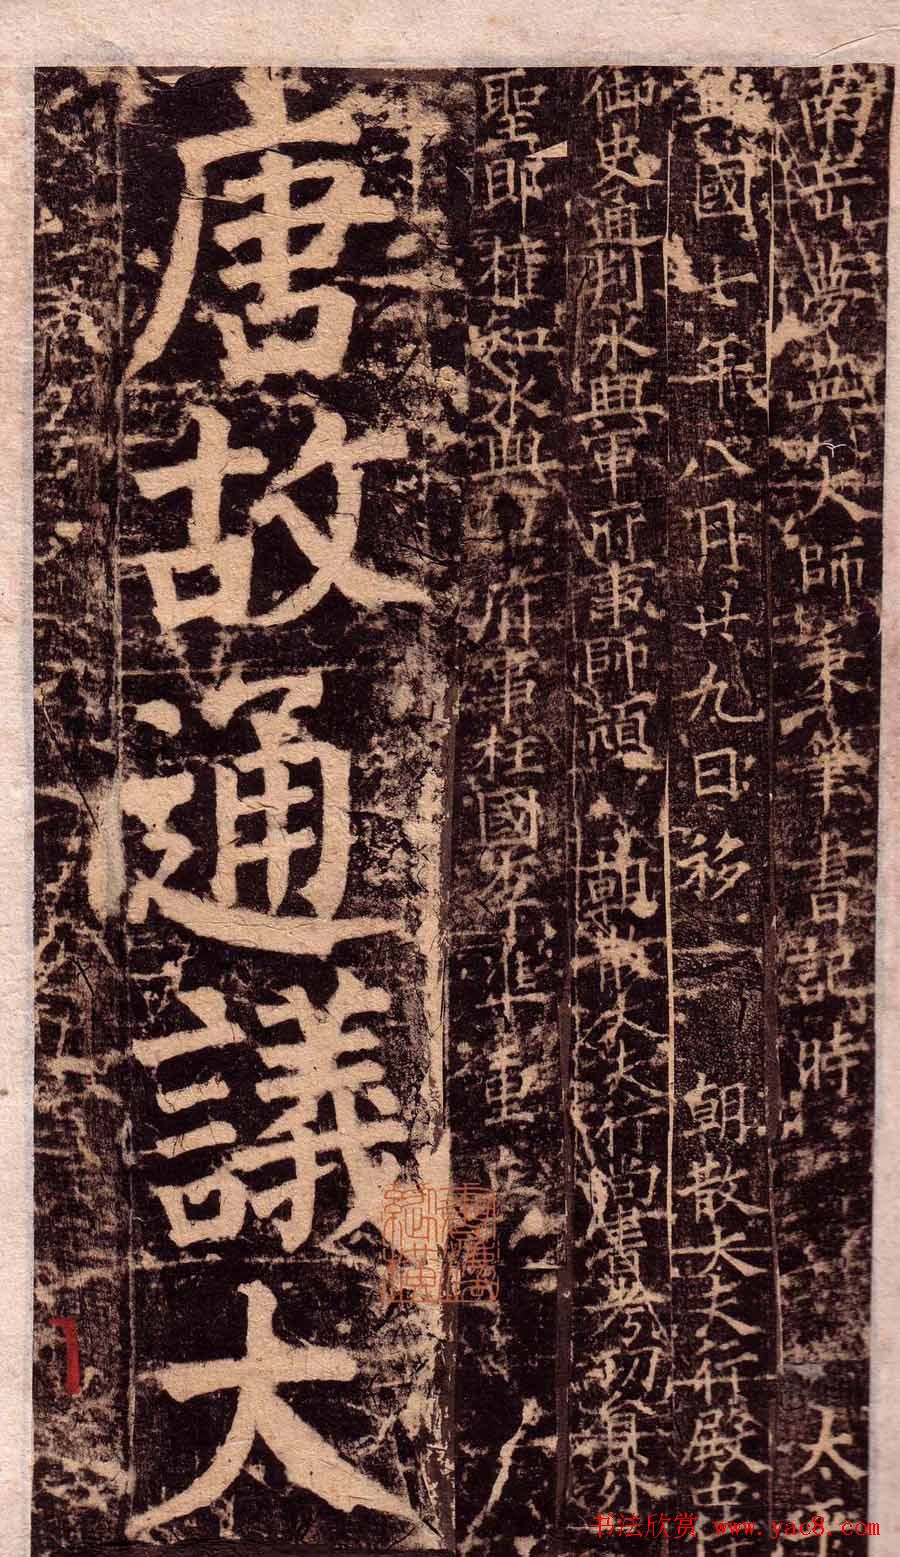 南岳夢英大師秉筆書記時 太平
興國七年八月廿九日移 朝散大夫行殿中侍
御史通判永興軍府事師頏 朝散大夫行尚書考功員外
郎權知永興軍府事柱國 準重
唐故通議大
书法欣赏 www.yac8.com